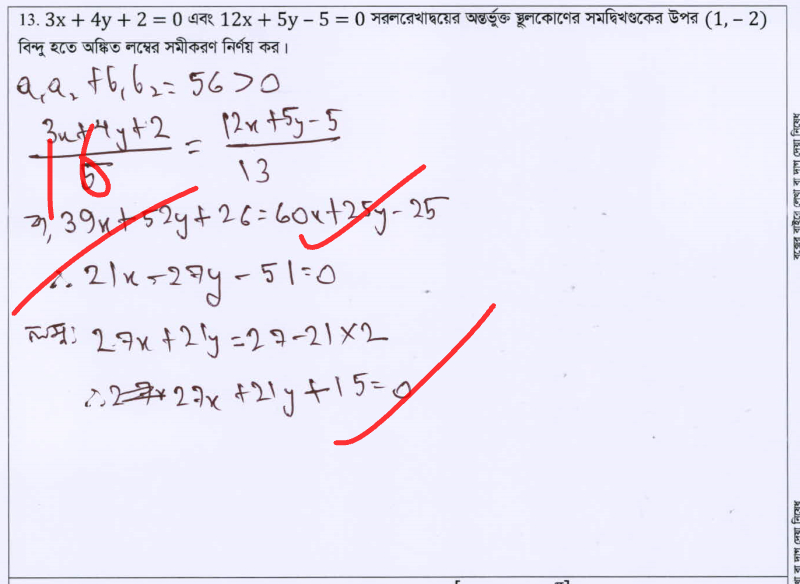 13. 3x + 4y + 2 = 0 এবং 12x + 5y − 5 = 0 সরলরেখাদ্বয়ের অন্তর্ভুক্ত স্থুলকোণের সমদ্বিখণ্ডকের উপর (1, − 2)
বিন্দু হতে অঙ্কিত লম্বের সমীকরণ নির্ণয় কর।
a₁a₂ + b₁b₂ = 56 > 0
(3x+4y+2)/5 = (12x+5y-5)/13
16
বা, 39x + 52y + 26 = 60x + 25y - 25
∴ 21x - 27y - 51 = 0
লম্ব: 27x + 21y = 27 - 21 × 2
∴ 27x + 21y + 15 = 0
বক্সের বাইরে লেখা বা দাগ দেয়া নিষেধ
বা দাগ দেয়া নিষেধ